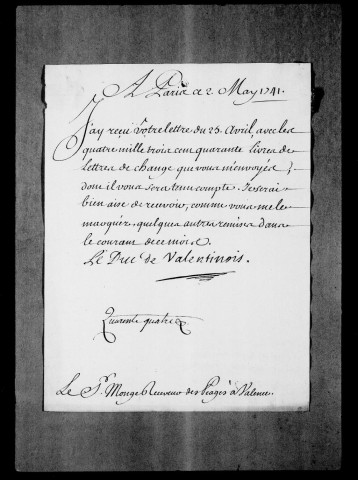 A Paris ce 2. May 1741.
J'ay reçu Votre lettre du 25. Avril, avec les
quatre mille trois cens quarante livres de
lettres de change que vous m'envoyés;
dont il vous sera tenu compte. Je serai
bien aise de recevoir, comme vous me le
marquéz, quelques autres remises dans
le courant de ce mois.
Le Duc de Valentinois.
Quarente quatre
Le Sr. Monge Receveur des Péages à Valence.